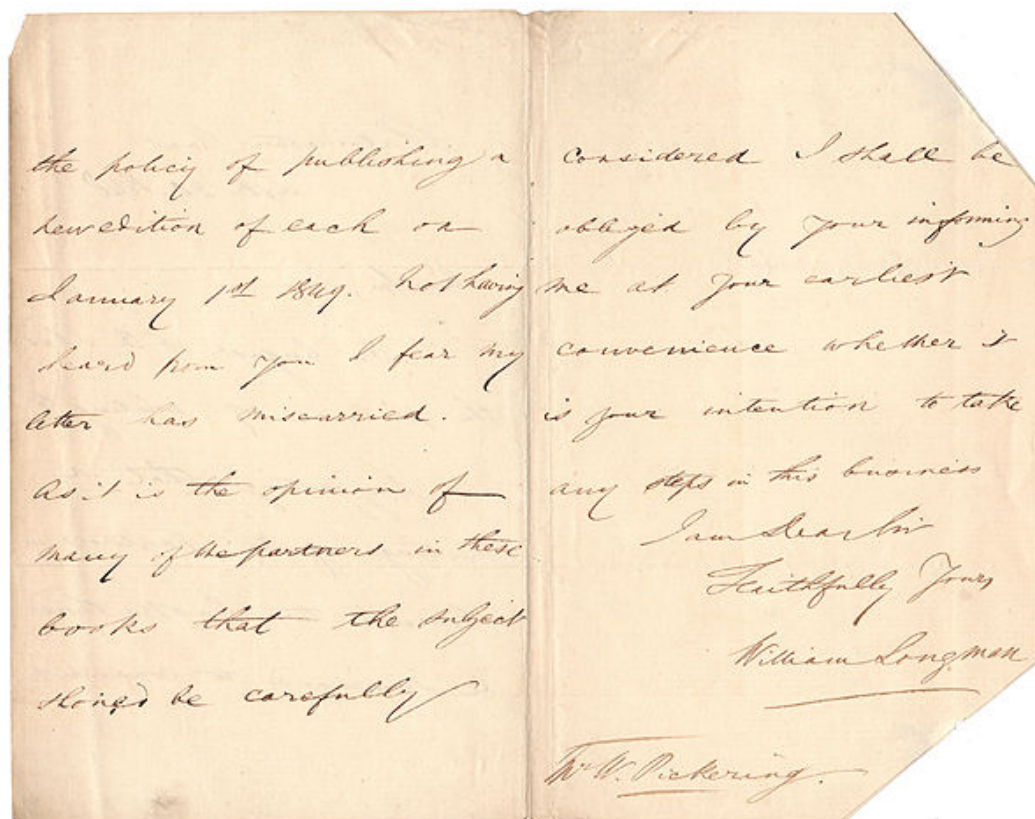 the policy of publishing a
new edition of each on
January 1st 1849. Not having
heard from you I fear my
letter has miscarried.
As it is the opinion of
many of the partners in these
books that the subject
should be carefully
considered I shall be
obliged by your informing
me at your earliest
convenience whether it
is your intention to take
any steps in this business
I am Dear Sir
Faithfully Yours
William Longman
Mr W. Pickering.